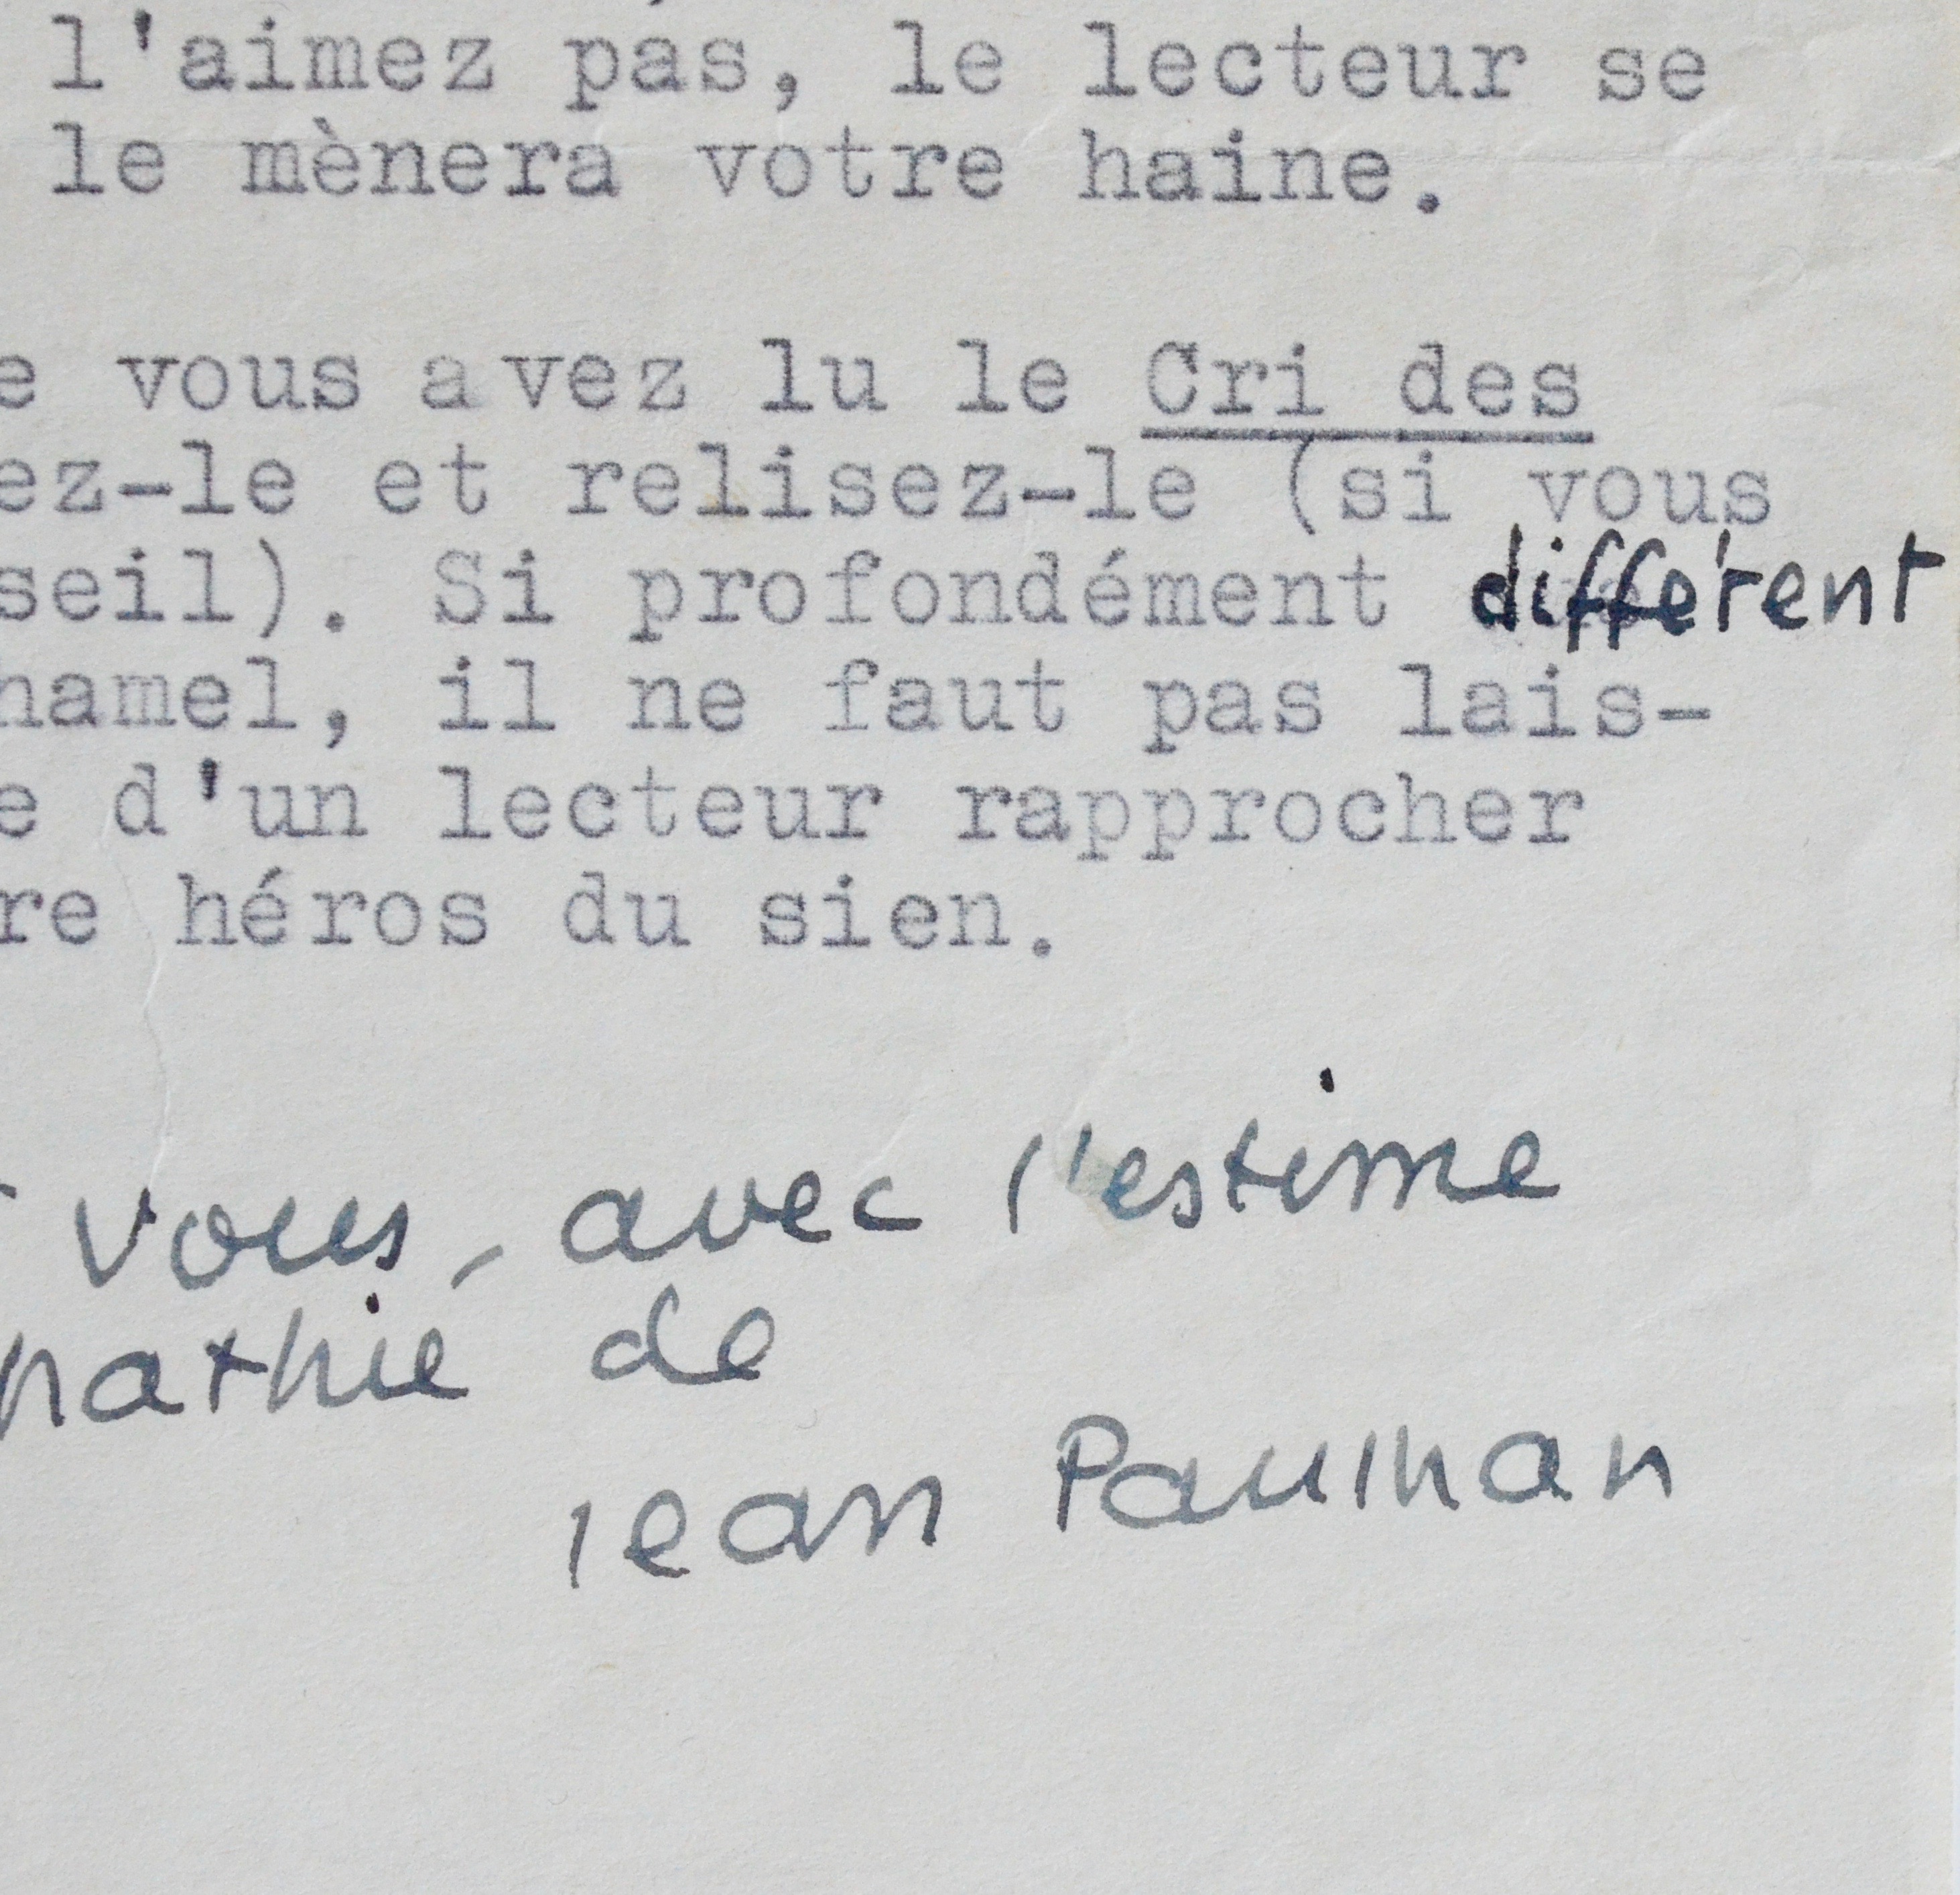 l'aimez pas, le lecteur se
le mènera votre haine.
e vous avez lu le Cri des
ez-le et relisez-le (si vous
seil). Si profondément différent
hamel, il ne faut pas lais-
e d'un lecteur rapprocher
re héros du sien.
vous, avec l'estime
pathie de
Jean Paulhan